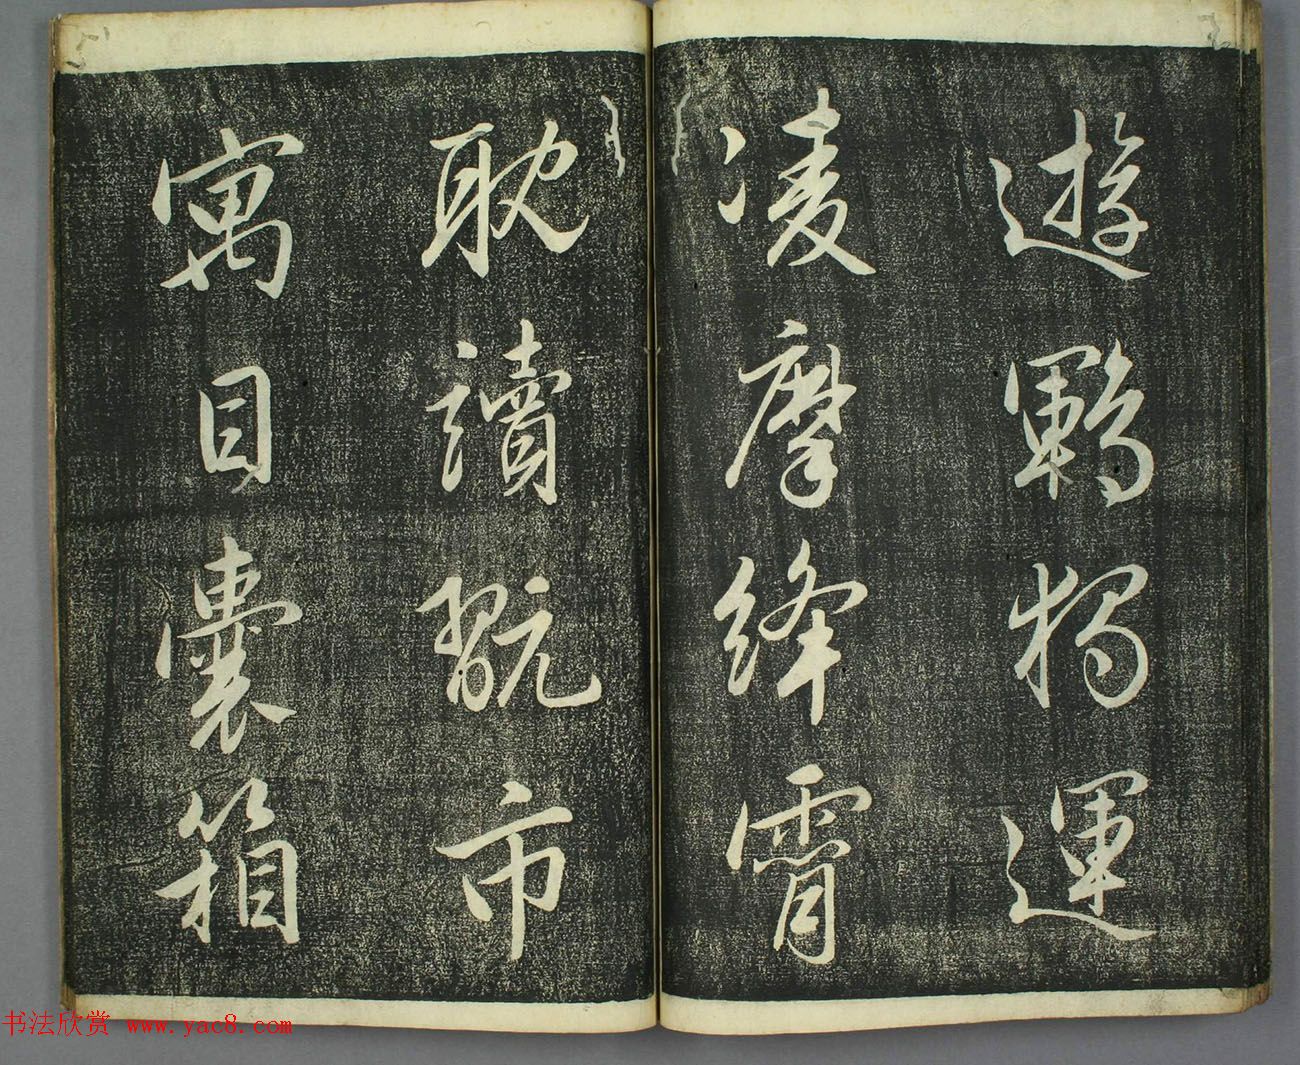 遊鵾獨運
凌摩絳霄
耽讀翫市
寓目囊箱
书法欣赏 www.yac8.com